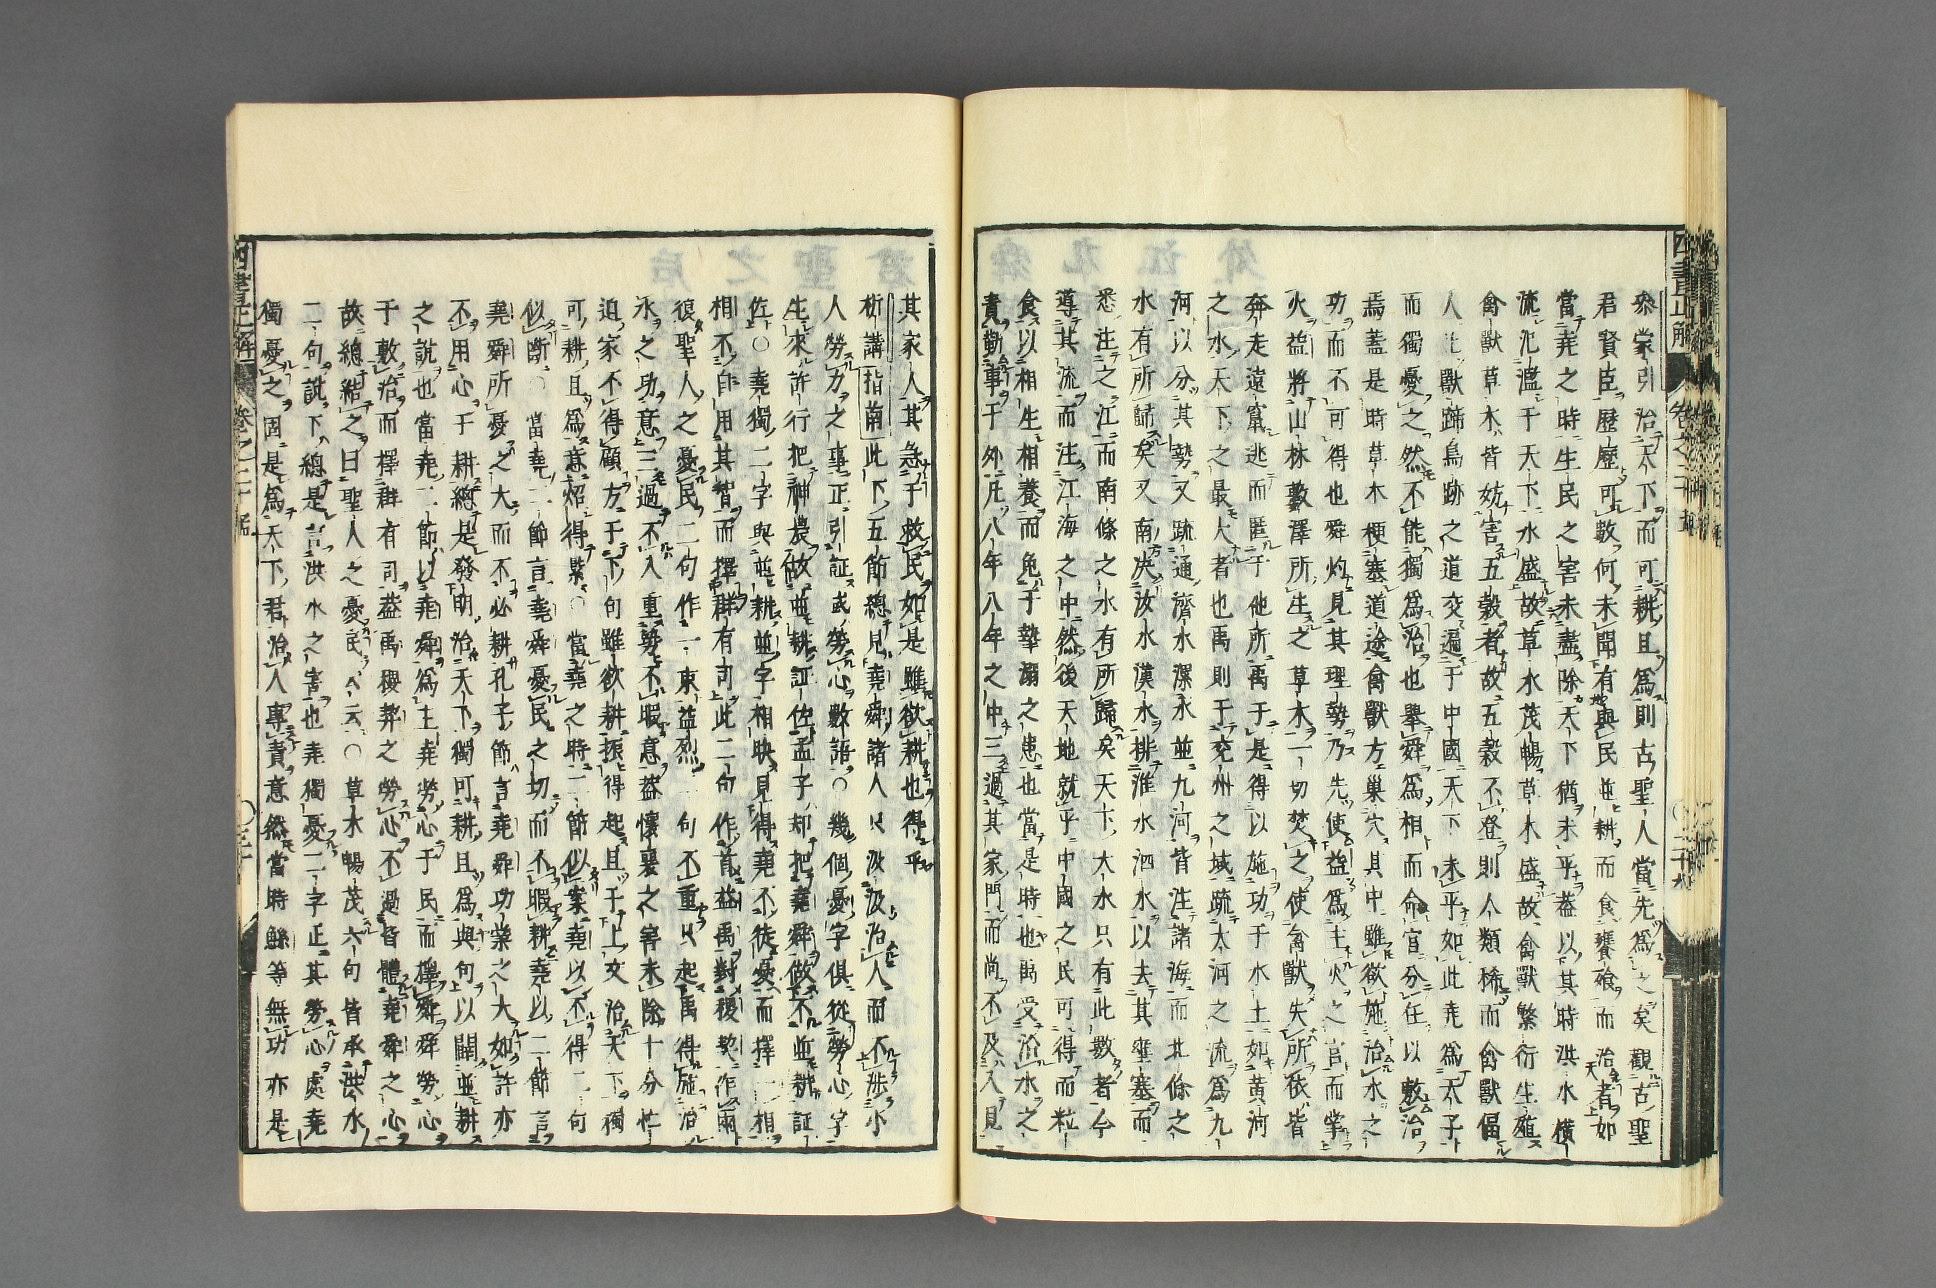 四書正解
卷之二十
參蒙引治天下而可耕且爲則古聖人當先爲之矣觀古聖
君賢臣歷歷可數何未聞有與民並耕而食饔飧而治者如
當堯之時生民之害未盡除天下猶未平蓋以其時洪水橫
流氾濫于天下水盛故草水茂暢草木盛故禽獸繁衍生殖
禽獸草木皆妨害五穀者故五穀不登則人類稀而禽獸偪
人獸蹄鳥跡之道交遍于中國天下未平如此堯爲天子
而獨憂之然不能獨爲治也舉舜爲相而命官分任以敷治
焉蓋是時草木梗塞道塗禽獸方巢穴其中雖欲施治水之
功而不可得也舜灼見其理勢乃先使益爲主火之官而掌
火益將山林藪澤所生之草木一切焚之使禽獸失所依皆
奔走遠竄逃而匿于他所禹于是得以施功于水土如黃河
之水天下之最大者也禹則于兗州之域疏大河之流爲九
河以分其勢又疏通濟水漯水並九河皆注諸海而北條之
水有所歸矣又南決汝水漢水排淮水泗水以去其壅塞而
悉注之江而南條之水有所歸矣天下大水只有此數者今
導其流而注江海之中然後天地就平中國之民可得而粒
食以相生相養而免于墊溺之患也當是時也禹受治水之
責勤事于外凡八年八年之中三過其家門而尚不及入見
其家人其急于救民如是雖欲耕也得乎
析講指南此下五節總見堯舜諸人只汲汲治人而不涉小
人勞力之事正引証或勞心數語〇幾個憂字俱從勞心字
生來許行把神農故並耕証佐孟子却把堯舜做不並耕証
佐〇堯獨二字與並耕並字相映見得堯不徒憂而擇一相
相不自用其智而擇群有司此二句作首益禹對稷契作兩
段聖人之憂民二句作一束益烈一句不重只起禹得施治
水之功意三過不入重勢不暇意蓋懷襄之害未除十分忙
迫家不得顧方于下句雖欲耕振得起且于上文治天下獨
可耕且爲意炤得緊〇當堯之時二節似案堯以不得二句
似斷〇當堯二節言堯舜憂民之切而不暇耕堯以二節言
堯舜所憂之大而不必耕孔子節言堯舜功業之大如許亦
不用心于耕總是發明治天下獨可耕且爲與句以闢並耕
之說也當堯二節以堯舜爲主堯勞心于民而擇舜舜勞心
于敷治而擇群有司蓋禹稷葬之勞心不過皆體堯舜之心
故總結之曰聖人之憂民云云〇草木暢茂六句皆承洪水
二句說下總是言洪水之害也堯獨憂二字正其勞心處堯
獨憂之固是爲天下君治人專責意然當時鯀等無功亦是
四書正解
卷之二十